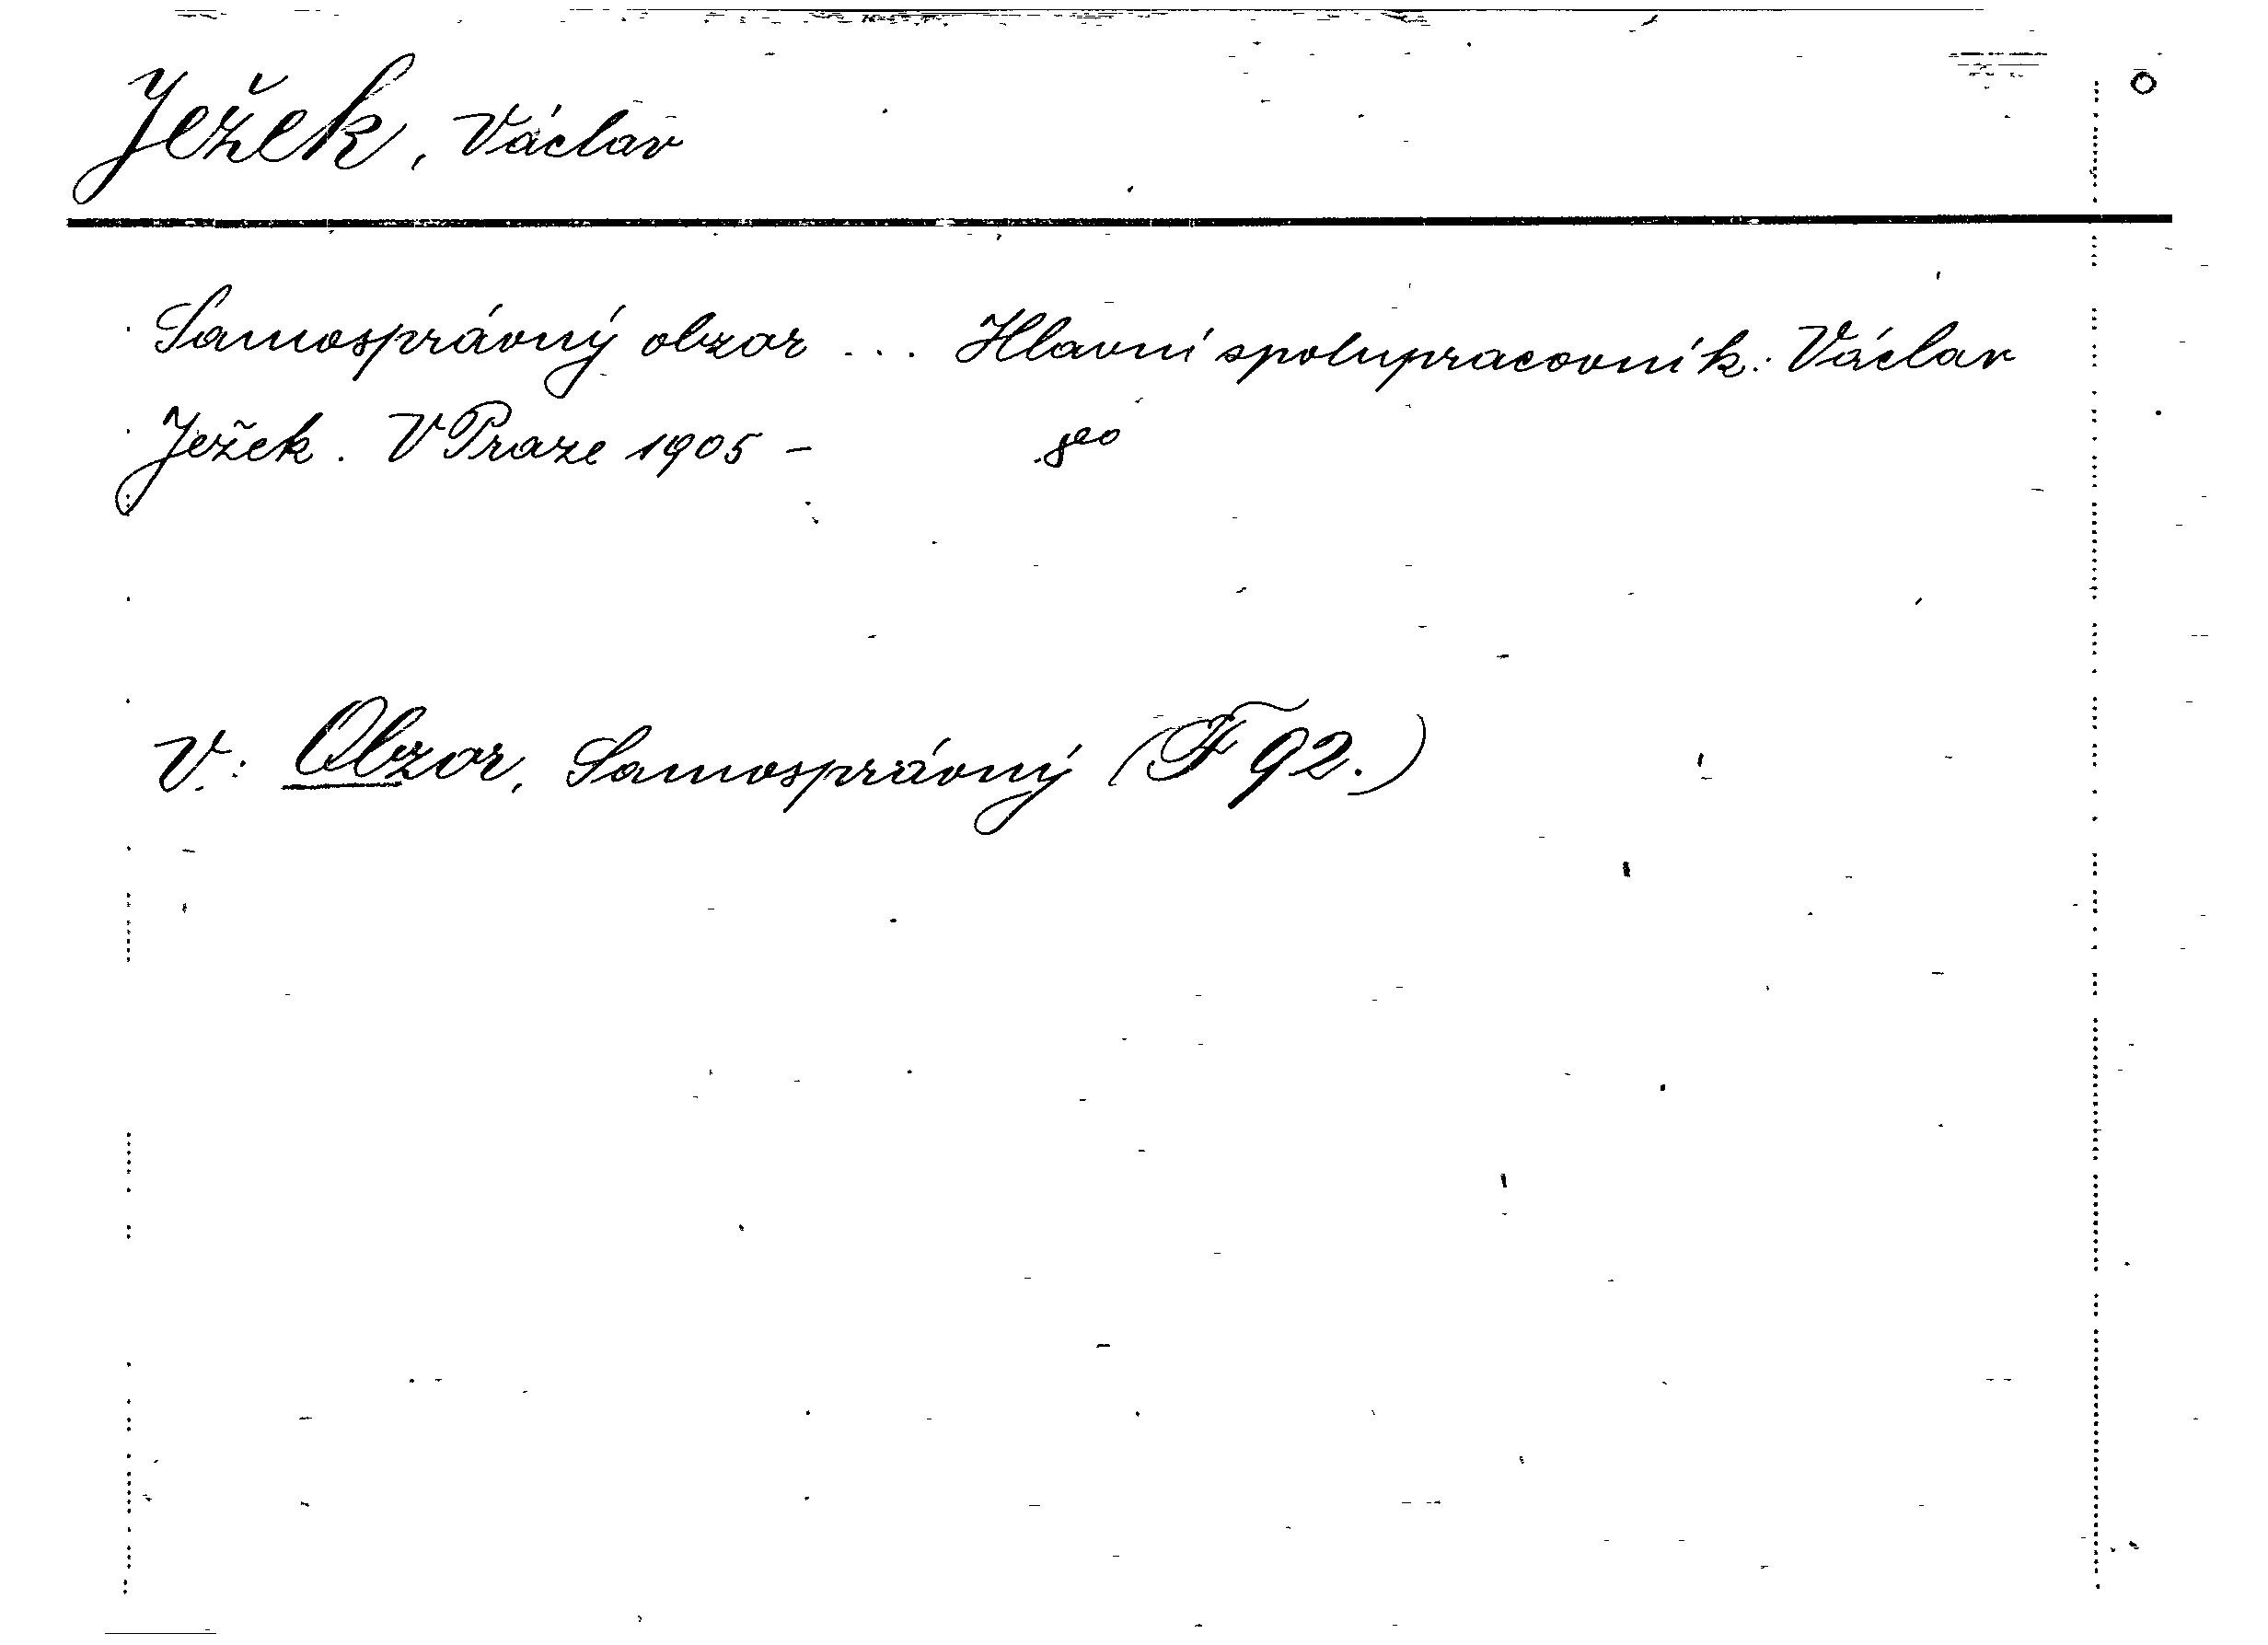 Ježek, Václav
Samosprávný obzor ... Hlavní spolupracovník: Václav
Ježek. V Praze 1905 – 8eo
V.: Obzor, Samosprávný (F 92.)